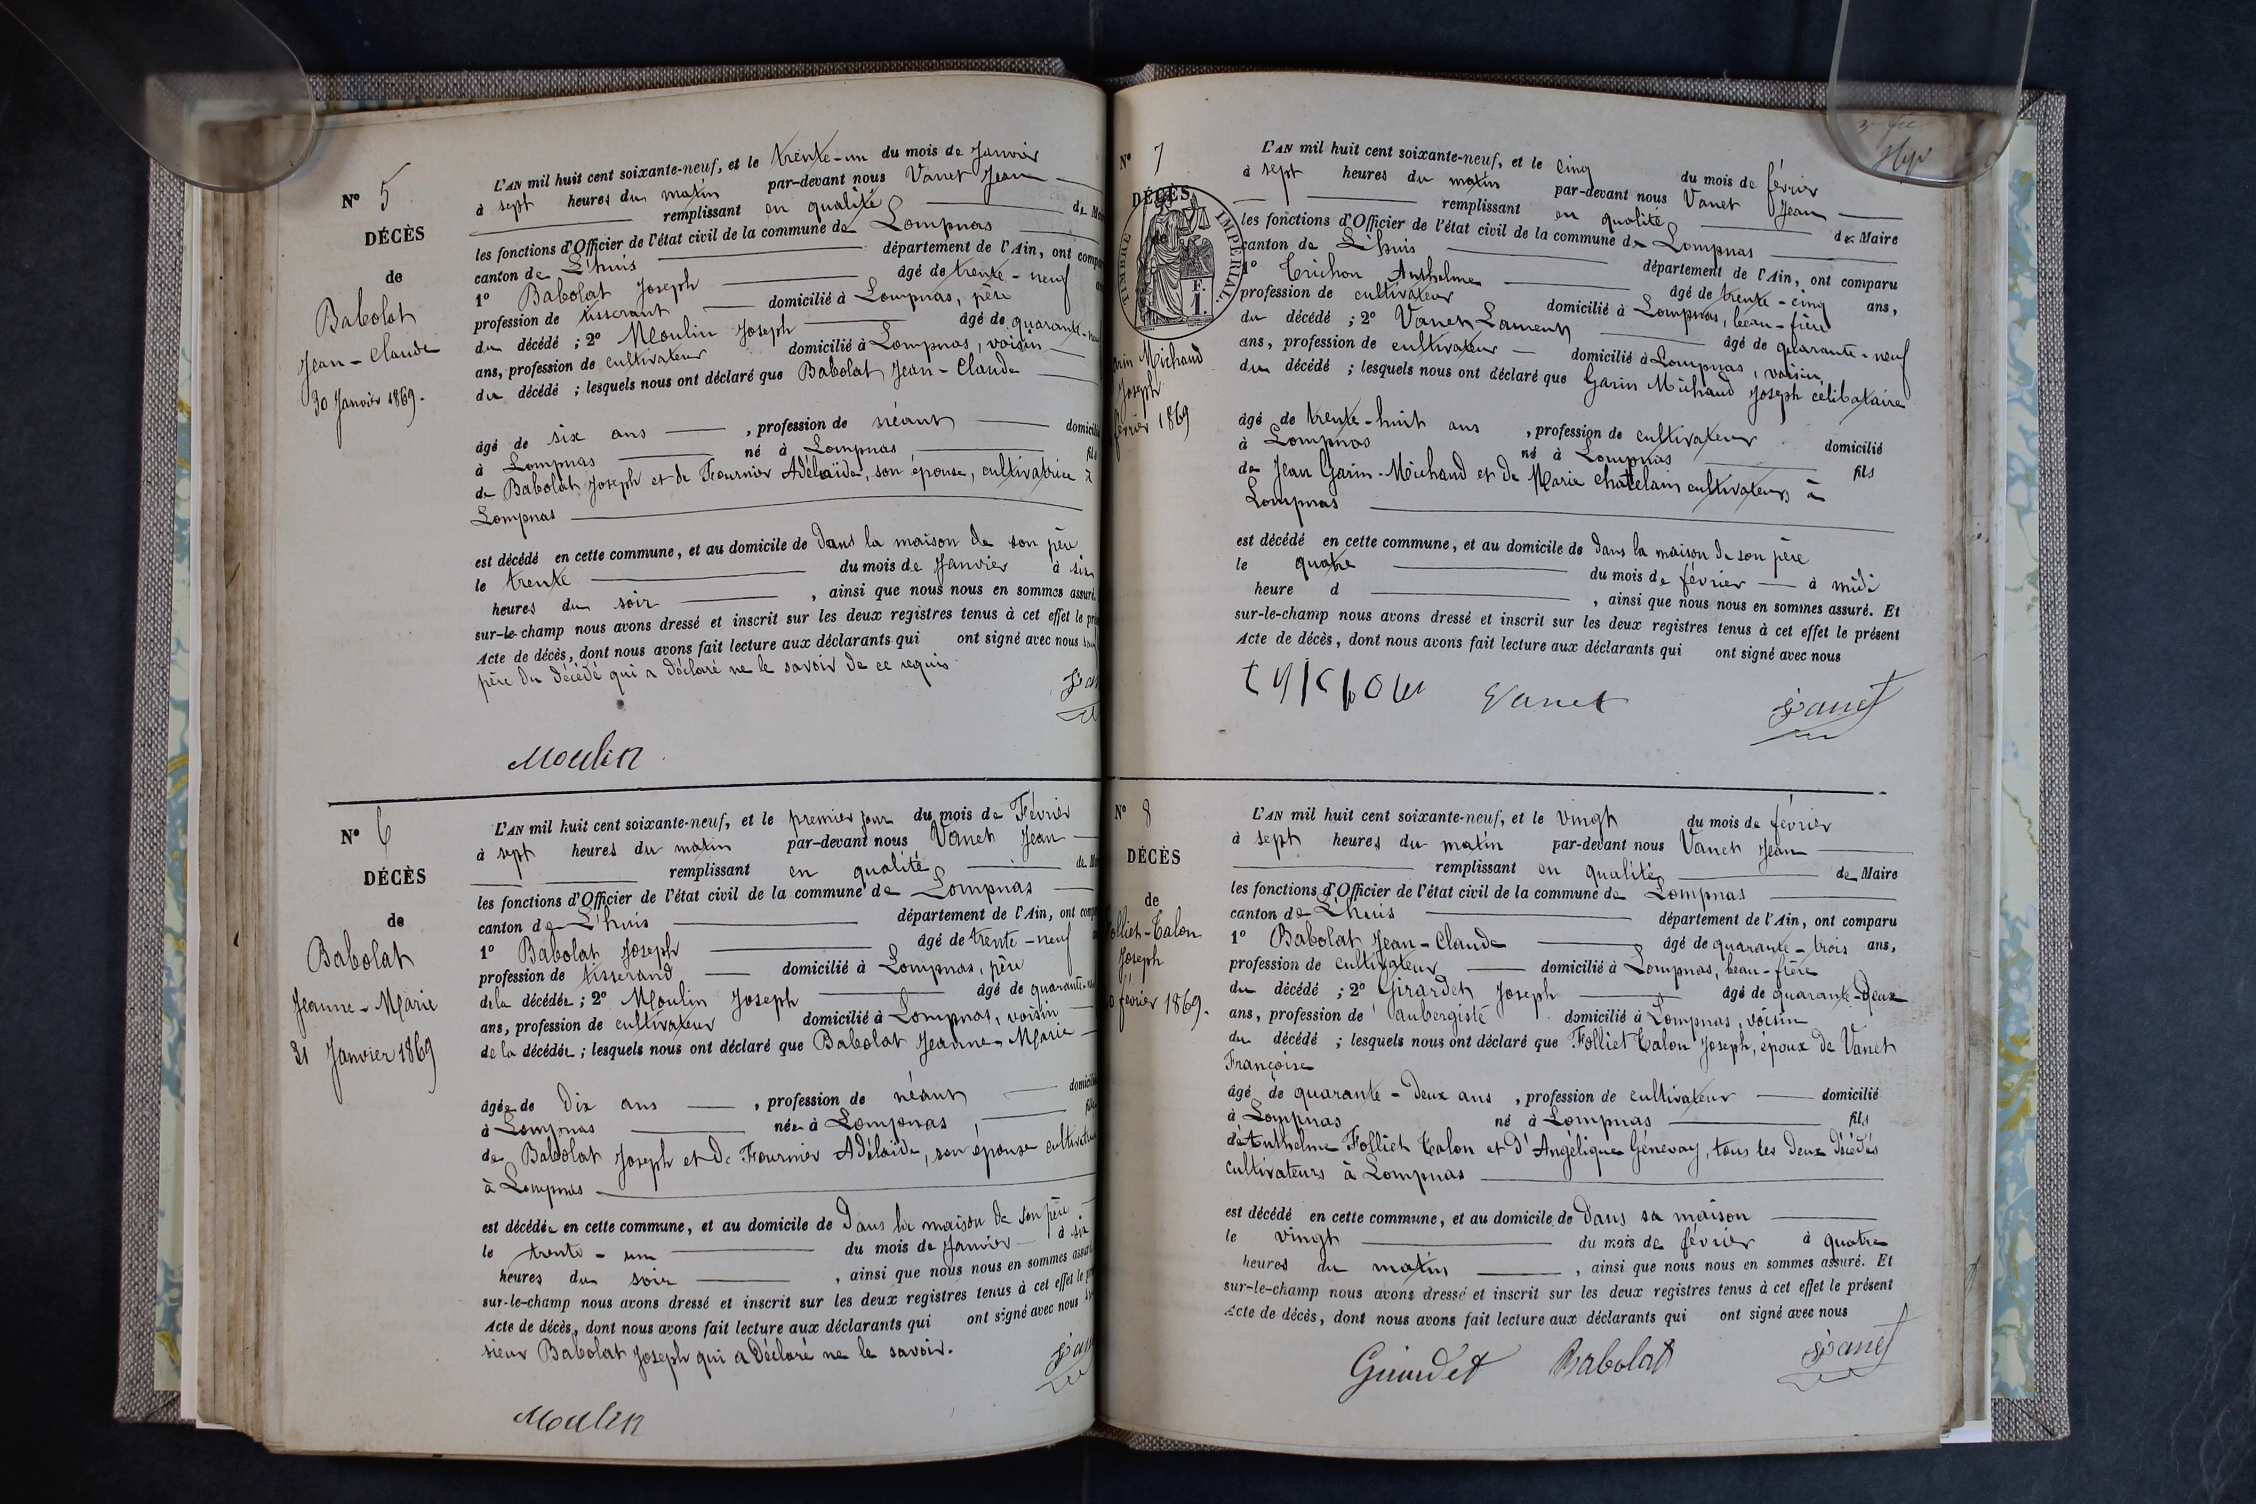 N° 5
DÉCÈS
de
Babolat
Jean-Claude
30 Janvier 1869.
L'AN mil huit cent soixante-neuf, et le trente-un du mois de Janvier
à sept heures du matin par-devant nous Vanet Jean
remplissant en qualité de
les fonctions d'Officier de l'état civil de la commune de Lompnas
canton de L'huis département de l'Ain, ont
1° Babolat Joseph âgé de trente-neuf
profession de tisserant domicilié à Lompnas, père
du décédé ; 2° Moulin Joseph âgé de quarante
ans, profession de cultivateur domicilié à Lompnas, voisin
du décédé ; lesquels nous ont déclaré que Babolat Jean-Claude
âgé de six ans , profession de néant
à Lompnas né à Lompnas
de Babolat Joseph et de Fournier Adélaïde, son épouse, cultivatrice à
Lompnas
est décédé en cette commune, et au domicile de dans la maison de son père
le trente du mois de Janvier à six
heures du soir , ainsi que nous nous en sommes assuré.
sur-le-champ nous avons dressé et inscrit sur les deux registres tenus à cet effet le
Acte de décès, dont nous avons fait lecture aux déclarants qui ont signé avec nous
père du décédé qui a déclaré ne le savoir de ce requis
Moulin
N° 6
DÉCÈS
de
Babolat
Jeanne-Marie
31 Janvier 1869
L'AN mil huit cent soixante-neuf, et le premier jour du mois de Février
à sept heures du matin par-devant nous Vanet Jean
remplissant en qualité de
les fonctions d'Officier de l'état civil de la commune de Lompnas
canton de L'huis département de l'Ain, ont
1° Babolat Joseph âgé de trente-neuf
profession de tisserand domicilié à Lompnas, père
de la décédée ; 2° Moulin Joseph âgé de quarante
ans, profession de cultivateur domicilié à Lompnas, voisin
de la décédée ; lesquels nous ont déclaré que Babolat Jeanne-Marie
âgée de dix ans , profession de néant
à Lompnas née à Lompnas
de Babolat Joseph et de Fournier Adélaïde, son épouse
à Lompnas
est décédée en cette commune, et au domicile de dans la maison de son père
le trente-un du mois de Janvier à six
heures du soir , ainsi que nous nous en sommes
sur-le-champ nous avons dressé et inscrit sur les deux registres tenus à cet effet le
Acte de décès, dont nous avons fait lecture aux déclarants qui ont signé avec nous
sieur Babolat Joseph qui a déclaré ne le savoir.
Moulin
N° 7
DÉCÈS
TIMBRE IMPÉRIAL.
F.
1.
Michaud
Joseph
février 1869
L'AN mil huit cent soixante-neuf, et le cinq du mois de février
à sept heures du matin par-devant nous Vanet Jean
remplissant en qualité de Maire
les fonctions d'Officier de l'état civil de la commune de Lompnas
canton de L'huis département de l'Ain, ont comparu
1° Trichon Anthelme âgé de trente-cinq ans,
profession de cultivateur domicilié à Lompnas, beau-frère
du décédé ; 2° Vanet Laurent âgé de quarante-neuf
ans, profession de cultivateur domicilié à Lompnas, voisin
du décédé ; lesquels nous ont déclaré que Garin Michaud Joseph célibataire
âgé de trente-huit ans , profession de cultivateur domicilié
à Lompnas né à Lompnas fils
de Jean Garin-Michaud et de Marie Chatelain cultivateurs à
Lompnas
est décédé en cette commune, et au domicile de dans la maison de son père
le quatre du mois de février à midi
heure d , ainsi que nous nous en sommes assuré. Et
sur-le-champ nous avons dressé et inscrit sur les deux registres tenus à cet effet le présent
Acte de décès, dont nous avons fait lecture aux déclarants qui ont signé avec nous
Vanet Vanet
N° 8
DÉCÈS
de
Talon
Joseph
février 1869.
L'AN mil huit cent soixante-neuf, et le vingt du mois de février
à sept heures du matin par-devant nous Vanet Jean
remplissant en qualité de Maire
les fonctions d'Officier de l'état civil de la commune de Lompnas
canton de L'huis département de l'Ain, ont comparu
1° Babolat Jean-Claude âgé de quarante-trois ans,
profession de cultivateur domicilié à Lompnas, beau-frère
du décédé ; 2° Girardet Joseph âgé de quarante-deux
ans, profession de aubergiste domicilié à Lompnas, voisin
du décédé ; lesquels nous ont déclaré que Folliet Talon Joseph, époux de Vanet
Françoise
âgé de quarante-deux ans , profession de cultivateur domicilié
à Lompnas né à Lompnas fils
d'Anthelme Folliet Talon et d'Angélique Génevay, tous les deux décédés
cultivateurs à Lompnas
est décédé en cette commune, et au domicile de dans sa maison
le vingt du mois de février à quatre
heures du matin , ainsi que nous nous en sommes assuré. Et
sur-le-champ nous avons dressé et inscrit sur les deux registres tenus à cet effet le présent
Acte de décès, dont nous avons fait lecture aux déclarants qui ont signé avec nous
Girardet Babolat Vanet